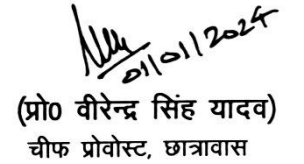 01/01/2024
(प्रो0 वीरेन्द्र सिंह यादव)
चीफ प्रोवोस्ट, छात्रावास